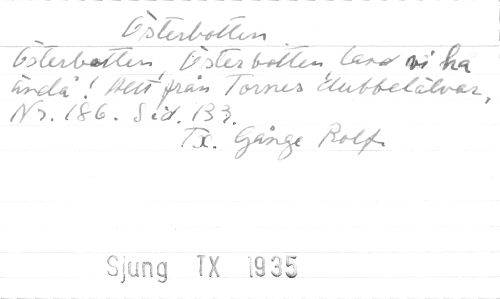 Österbotten
Österbotten, Österbotten, land vi ha
ändå! Allt från Torneå dubbelälvar,
Nr. 186. Sid. 133.
Tx. Gånge Rolf.
Sjung TX 1935